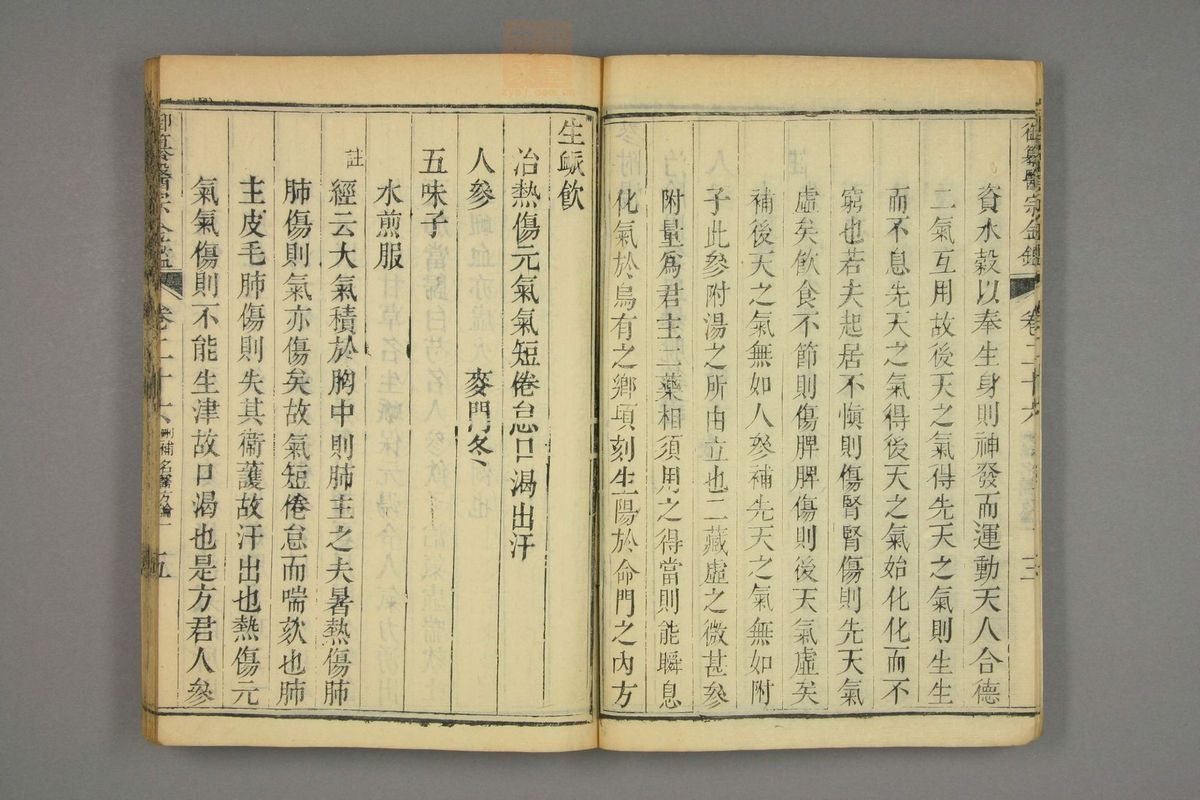 御纂醫宗金鑑 卷二十六 三
資水穀以奉生身則神發而運動天人合德
二氣互用故後天之氣得先天之氣則生生
而不息先天之氣得後天之氣始化化而不
窮也若夫起居不慎則傷腎腎傷則先天氣
虛矣飲食不節則傷脾脾傷則後天氣虛矣
補後天之氣無如人參補先天之氣無如附
子此參附湯之所由立也二藏虛之微甚參
附量爲君主二藥相須用之得當則能瞬息
化氣於烏有之鄉頃刻生陽於命門之內方
生脈飲
治熱傷元氣氣短倦怠口渴出汗
人參 麥門冬
五味子
水煎服
註
經云大氣積於胸中則肺主之夫暑熱傷肺
肺傷則氣亦傷矣故氣短倦怠而喘欬也肺
主皮毛肺傷則失其衞護故汗出也熱傷元
氣氣傷則不能生津故口渴也是方君人參
御纂醫宗金鑑 卷二十六 刪補名醫方論一 五